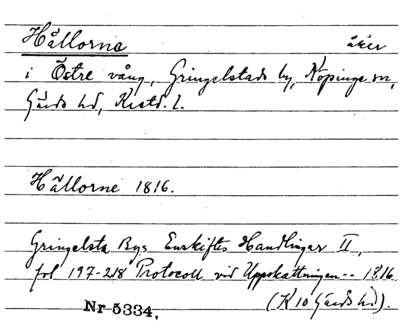 Hållorne åker
i Östre vång, Gringelstads by, Köpinge sn,
Gärds hd, Krstd. l.
Hållorne 1816.
Gringelsta Bys Enskiftes Handlingar II,
fol 197-218 Protocoll vid Uppskattningen -- 1816.
(K 10 Gärds hd).
Nr 5334.